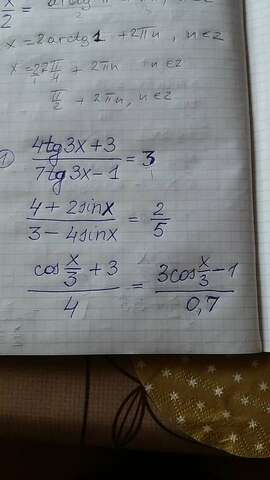 x/2 = arctg
x = 2arctg1 + 2πn, n∈z
x = 2π/4 + 2πn n∈z
π/2 + 2πn, n∈z
1) (4tg3x+3)/(7tg3x-1) = 3
(4+2sinx)/(3-4sinx) = 2/5
(cos x/3 + 3)/4 = (3cos x/3 - 1)/0,7